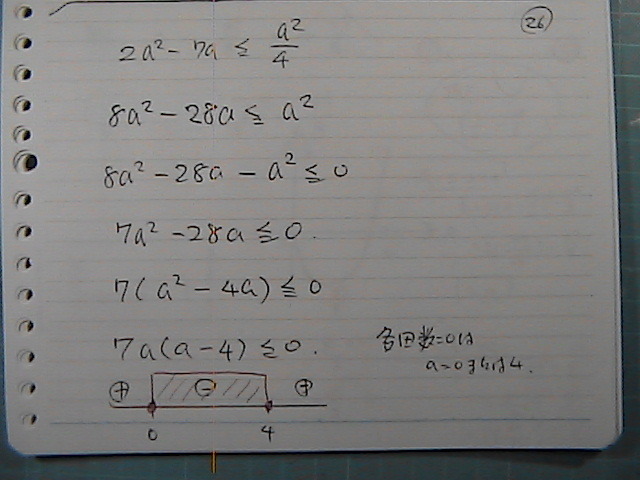 26
2a² - 7a ≦ a²/4
8a² - 28a ≦ a²
8a² - 28a - a² ≦ 0
7a² - 28a ≦ 0.
7(a² - 4a) ≦ 0
7a(a-4) ≦ 0.
各因数=0は
a=0または4.
⊕ ⊖ ⊕
0 4